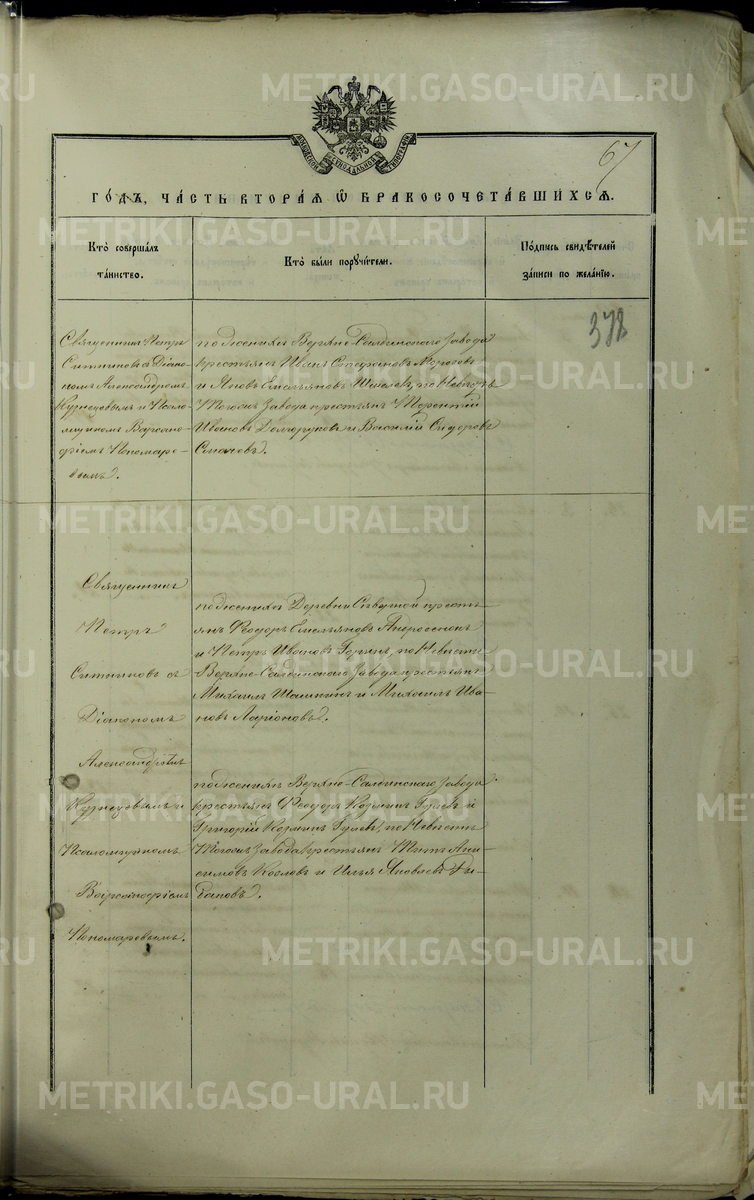 67
ГО́ДЪ, ЧА́СТЬ ВТОРА́Я Ѽ БРАКОСОЧЕТА́ВШИХСЯ.
Кто̀ соверша́лъ
та́инство.
Кто̀ бы́ли поручи́тели.
По́дпись свидѣ́телей
за́писи по жела́нїю.
378
Священникъ Петръ
Ситниковъ съ Діако-
номъ Александромъ
Кузнецовымъ и Псало-
мщикомъ Варсоно-
фіемъ Пономаре-
вымъ.
по женихѣ Верхно-Салдинскаго Завода
крестьяне Иванъ Морозовъ
и Яковъ Емельяновъ по Невѣстѣ
Тогожъ Завода крестьяне Терентій
Ивановъ Долгоруковъ и Василій Сидоровъ
Священникъ
Петръ
Ситниковъ съ
Діакономъ
Александромъ
Кузнецовымъ и
Псаломщикомъ
Варсонофіемъ
Пономаревымъ.
по женихѣ Деревни крестъ
янѣ Феодоръ Емельяновъ
и Петръ Ивановъ по Невѣстѣ
Верхно-Салдинскаго Завода крестьяне
Михаилъ и Михаилъ Ива-
новъ Ларіоновъ.
по женихѣ Верхно-Салдинскаго Завода
крестьяне Феодоръ Козминъ Гуевъ и
Григорій Козминъ Гуевъ, по Невѣстѣ
Тогожъ Завода крестьяне Титъ Ани-
симовъ Козловъ и Илья Яковлевъ
METRIKI.GASO-URAL.RU